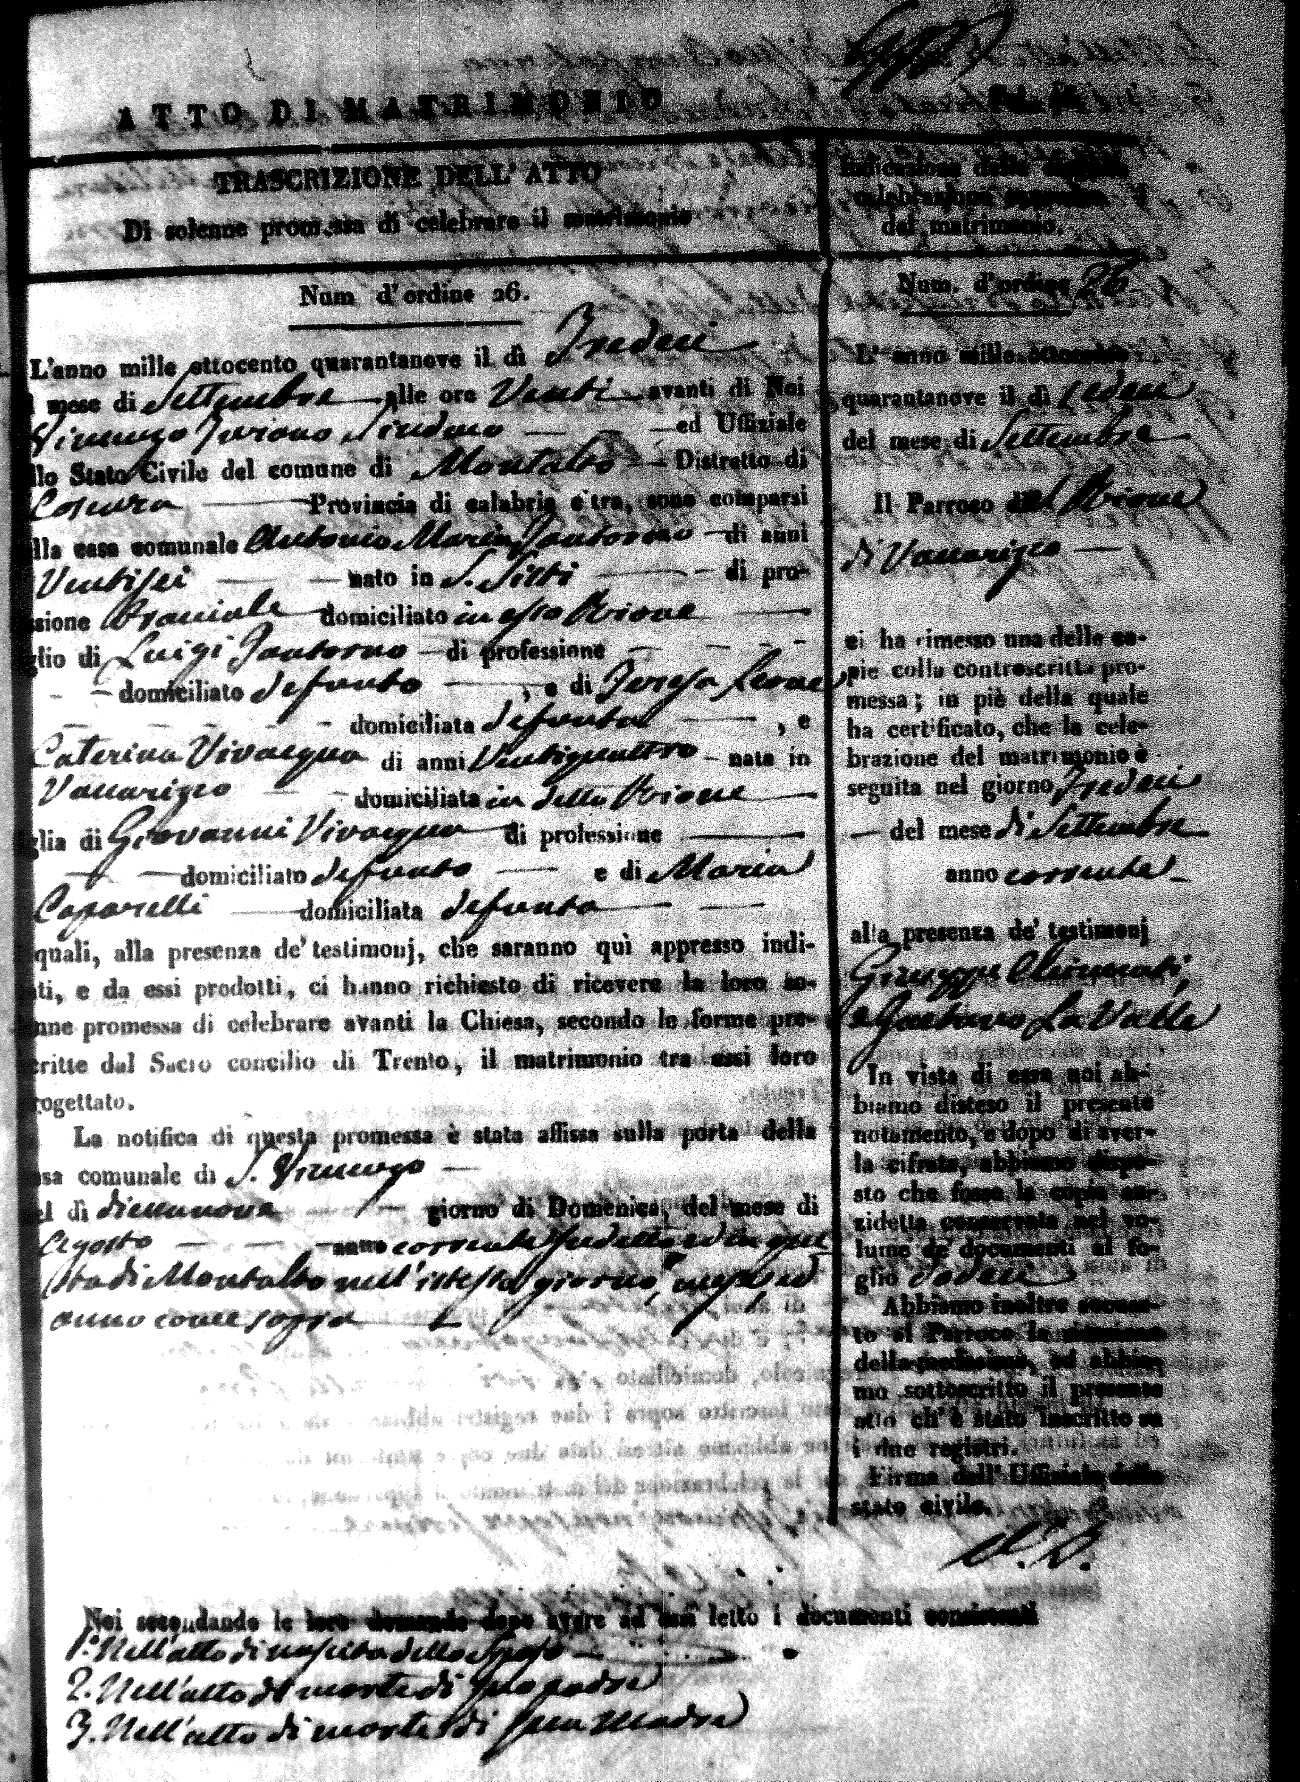 ATTO DI MATRIMONIO
TRASCRIZIONE DELL' ATTO
Di solenne promessa di celebrare il matrimonio
Num d'ordine 26.
L'anno mille ottocento quarantanove il dì Tredeci
mese di Settembre alle ore Venti avanti di Noi
Sindaco ed Uffiziale
llo Stato Civile del comune di Montalto Distretto di
Cosenza Provincia di calabria c'tra, sono comparsi
lla casa comunale Antonio Maria Santoro di anni
Ventisei nato in S. Sisti di pro-
ssione Bracciale domiciliato in esso Rione
glio di Luigi Santoro di professione
domiciliato defunto , e di Teresa Leone
domiciliata defunta , e
Caterina Vivacqua di anni Ventiquattro nata in
Vaccarizzo domiciliata in detto Rione
glia di Giovanni Vivacqua di professione
domiciliato defunto e di Maria
Caparelli domiciliata defunta
quali, alla presenza de' testimonj, che saranno quì appresso indi-
ti, e da essi prodotti, ci hanno richiesto di ricevere la loro so-
nne promessa di celebrare avanti la Chiesa, secondo le forme pre-
critte dal Sacro concilio di Trento, il matrimonio tra essi loro
rogettato.
La notifica di questa promessa è stata affissa sulla porta della
sa comunale di S. Vincenzo
el dì diecinnove giorno di Domenica, del mese di
Agosto anno corrente sudetto ed in que
sta di Montalto nell'istesso giorno, mese ed
anno come sopra
Indicazione della
celebrazione
del matrimonio.
Num. d'ordine 26
L' anno mille ottocento
quarantanove il dì Tredeci
del mese di Settembre
Il Parroco del Rione
di Vaccarizzo
ci ha rimesso una delle co-
pie colla controscritta pro-
messa; in piè della quale
ha certificato, che la cele-
brazione del matrimonio è
seguita nel giorno Tredeci
del mese di Settembre
anno corrente
alla presenza de' testimonj
Giuseppe
e Gaetano La Valle
In vista di essa noi ab-
biamo disteso il presente
notamento, e dopo di aver-
la cifrata, abbiamo dispo-
sto che fosse la copia an-
zidetta conservata nel vo-
lume de' documenti al fo-
glio
Abbiamo inoltre accusa-
to al Parroco la ricezione
della medesima, ed abbia-
mo sottoscritto il presente
atto ch' è stato inscritto su
i due registri.
Firma dell' Uffiziale dello
stato civile.
Noi secondando le loro domande dopo avere ad essi letto i documenti consistenti
1.° Nell'atto di nascita dello Sposo
2. Nell'atto di morte di suo padre
3. Nell'atto di morte di sua Madre